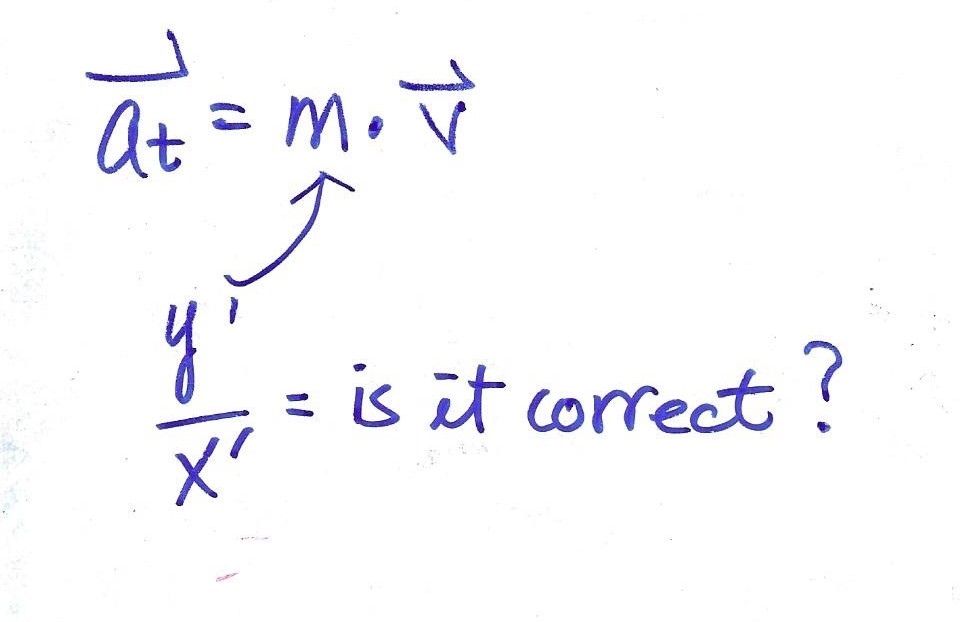 a⃗ₜ = m · v⃗
y'
x' = is it correct?